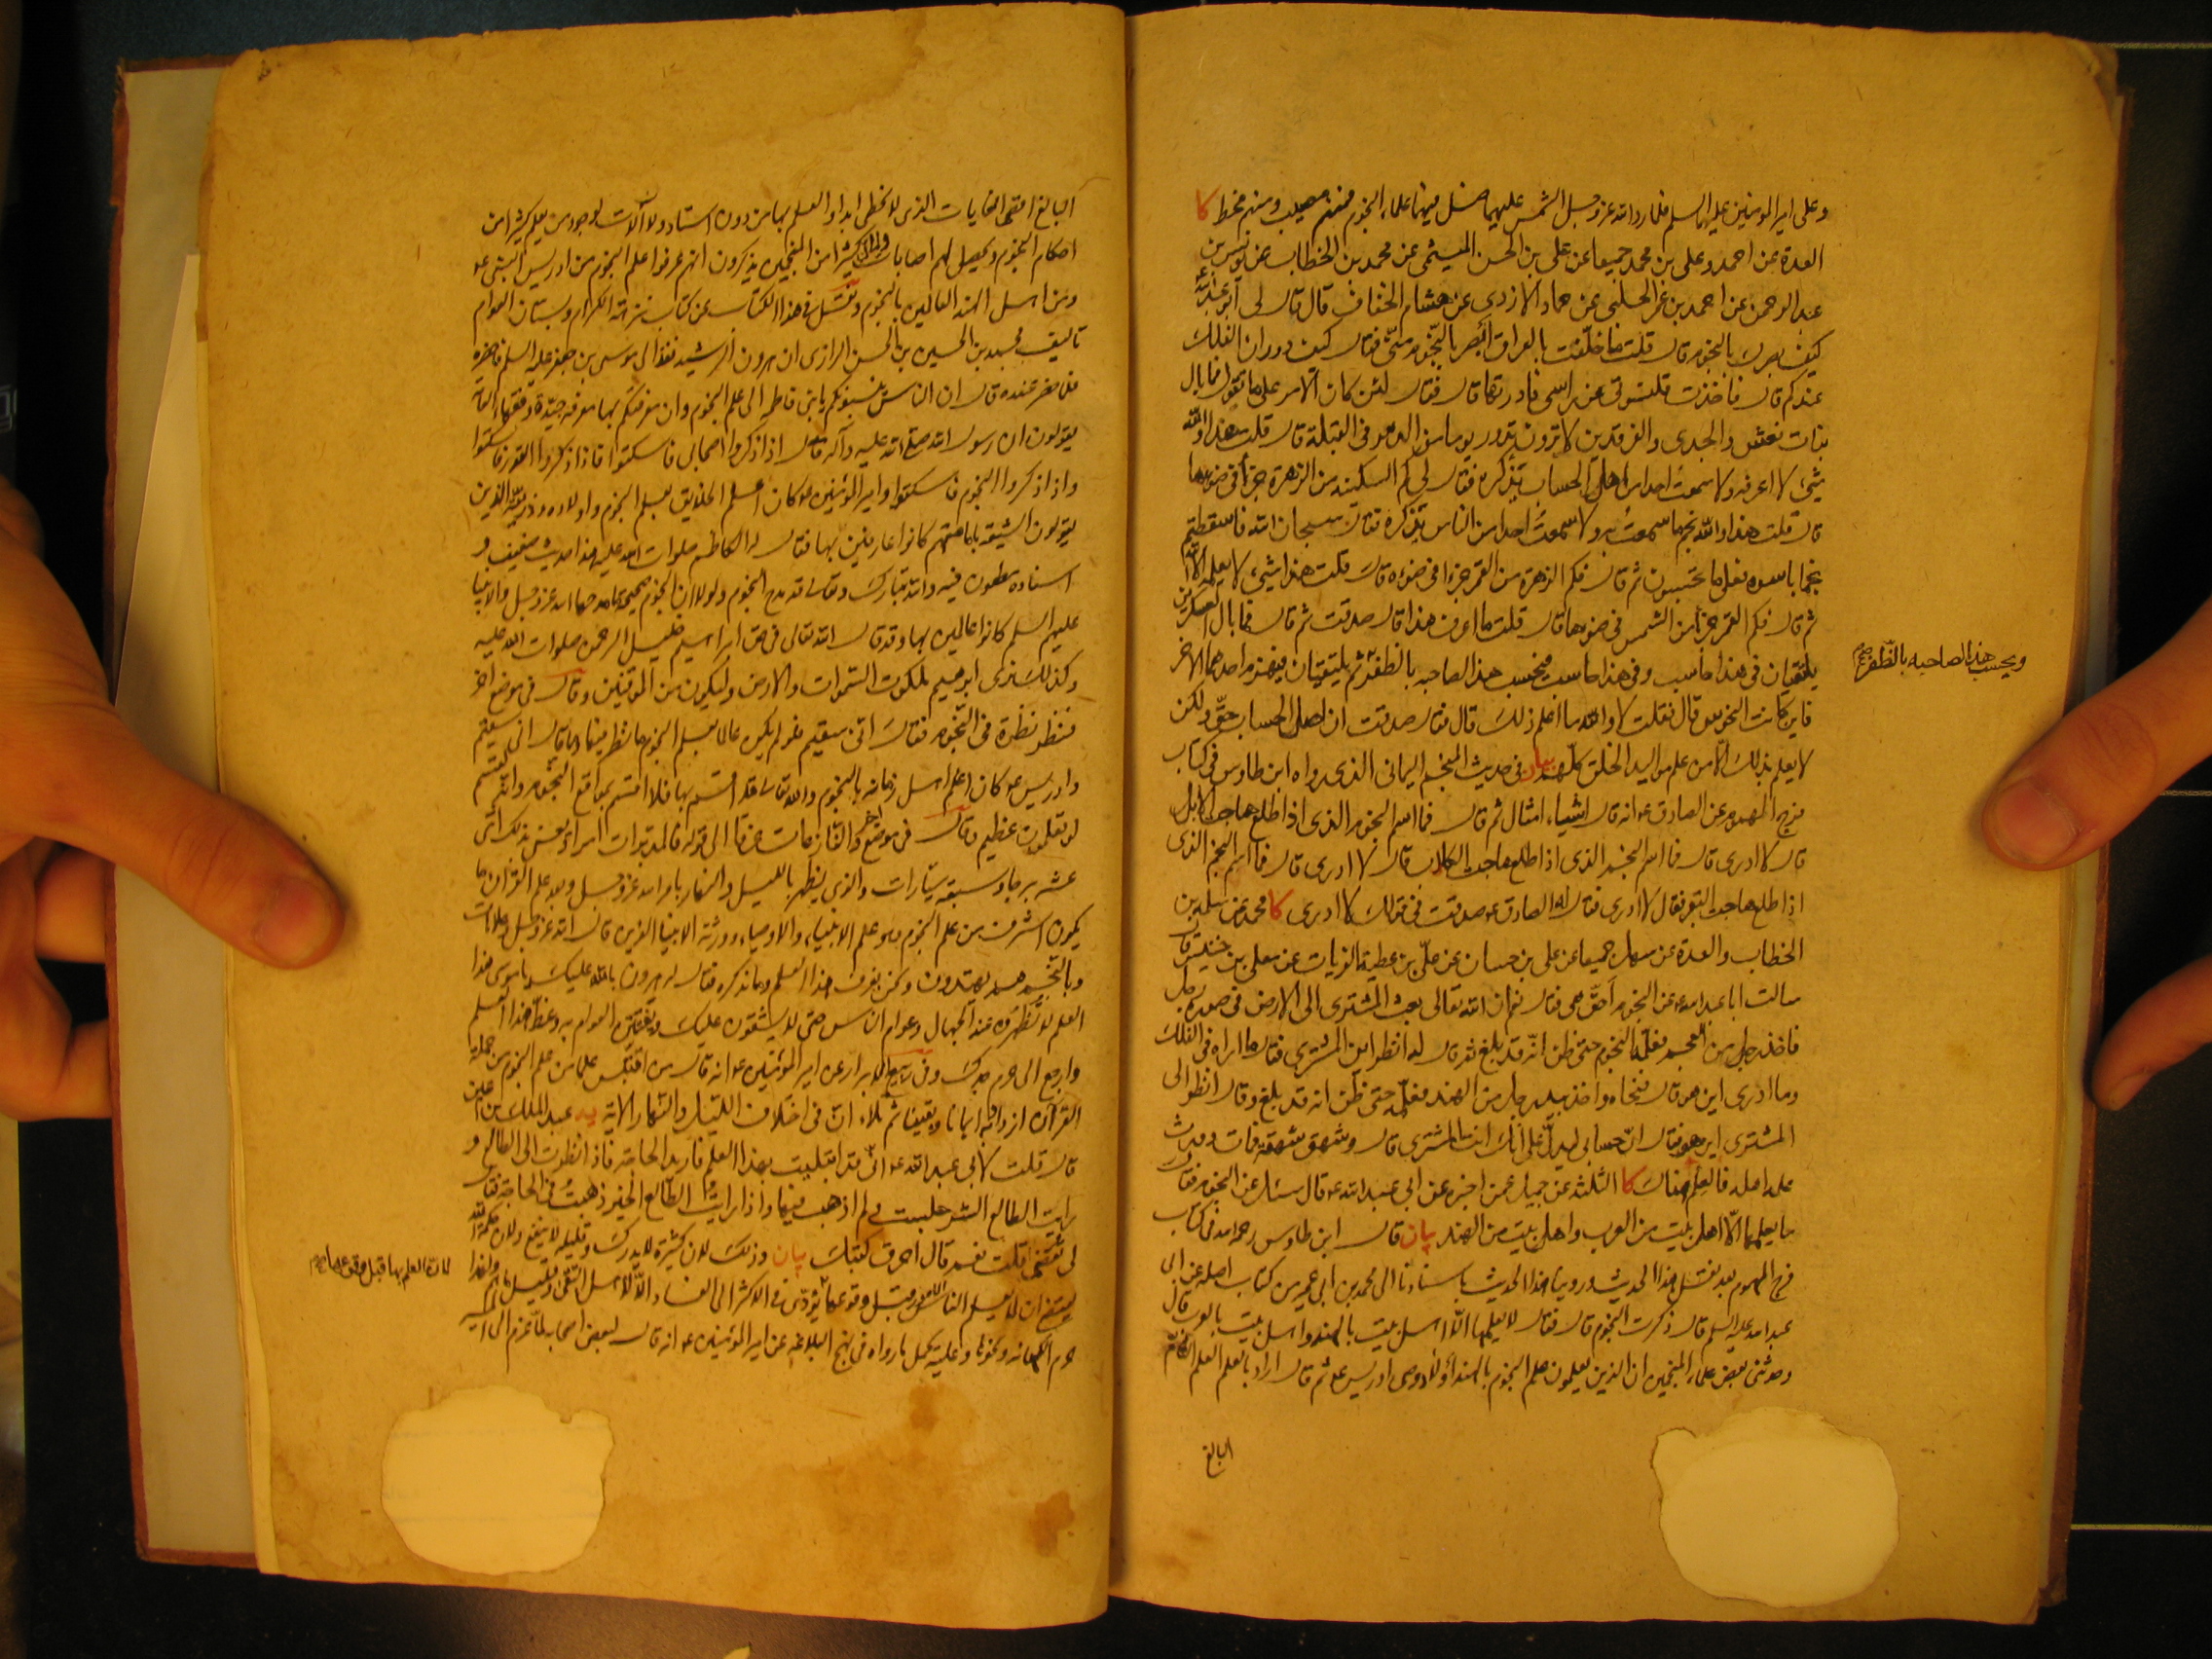 وعلى امير المومنين عليه السلم فلما رد الله عز وجل الشمس عليهما ضل فيها علماء النجوم فمنهم مصيب ومنهم مخط كا
العدة عن احمد وعلى بن محمد جميعا عن على بن الحسن الميثمى عن محمد بن الخطاب عن يونس بن
عبد الرحمن عن احمد بن عمر الحلبى عن حماد الازدى عن هشام الخفاف قال قال لى ابو عبد الله ع
كيف بصرك بالنجوم قال قلت ما خلّفت بالعراق ابصر بالنّجوم منّى فقال كيف دوران الفلك
عندكم قال فاخذت قلنسوتى عن راسى فادرتها قال فقال لئن كان الامر على ما تقول فما بال
بنات نعش والجدى والفرقدين لا ترون تدور يوما من الدهر فى القبلة قال قلت هذا والله
شيئ لا اعرفه ولا سمعت احدا من اهل الحساب يذكره فقال لى كم السكينة من الزهرة جزءا فى ضوءها
قال قلت هذا والله نجم ما سمعت به ولا سمعت احدا من الناس يذكره فقال سبحان الله فاسقطتم
نجما باسره فعلى ما تحسبون ثم قال فكم الزهرة من القمر جزءا فى ضوءه قال قلت هذا شيئ لا يعلمه الا الله
ثم قال فكم القمر جزءا من الشمس فى ضوءها قال قلت ما اعرف هذا قال صدقت ثم قال فما بال العسكرين
يلتقيان فى هذا حاسب وفى هذا حاسب فيحسب هذا لصاحبه بالظفر ثم يلتقيان فيهزم احدهما الاخر
ويحسب هذا لصاحبه بالظفر صح
فاين كانت النحوس قال فقلت لا والله ما اعلم ذلك قال فقال صدقت ان اصل الحساب حق ولكن
لا يعلم بذلك الا من علم مواليد الخلق كلهم بيان فى حديث المنجم اليمانى الذى رواه ابن طاوس فى كتاب
فرج المهموم عن الصادق ع انه قال اشياء امثال ثم قال فما اسم النجوم الذى اذا طلع هاجت الابل
قال لا ادرى قال فما اسم النجم الذى اذا طلع هاجت الكلاب قال لا ادرى قال فما اسم النجم الذى
اذا طلع هاجت البقر فقال لا ادرى فقال له الصادق ع صدقت فى قولك لا ادرى كا محمد عن سلمة بن
الخطاب والعدة عن سهل جميعا عن على بن حسان عن على بن عطية الزيات عن معلى بن خنيس قال
سالت ابا عبد الله ع عن النجوم أحق هى فقال نعم ان الله تعالى بعث المشترى الى الارض فى صورة رجل
فاخذ رجل من العجم فعلمه النجوم حتى ظن انه قد بلغ ثم قال له انظر اين المشترى فقال ما اراه فى الفلك
وما ادرى اين هو قال فنحاه واخذ بيد رجل من الهند فعلمه حتى ظن انه قد بلغ وقال انظر الى
المشترى اين هو فقال ان حسابى ليدل على انك انت المشترى قال وشهق شهقة فمات وورث
علمه اهله فالعلم هناك كا الثلثة عن جميل عمن اخبره عن ابى عبد الله ع قال سئل عن النجوم فقال
ما يعلمها الا اهل بيت من العرب واهل بيت من الهند بيان قال ابن طاوس رحمه الله فى كتاب
فرج المهموم بعد نقل هذا الحديث وروينا هذا الحديث باسنادنا الى محمد بن ابى عمير من كتاب اصله عن ابى
عبد الله عليه السلم قال ذكرت النجوم قال فقال لا يعلمها الا اهل بيت بالهند واهل بيت بالعرب قال
وحدثنى بعض علماء المنجمين ان الذين يعلمون علم النجوم بالهند اولاد وصى ادريس ع ثم قال اراد بالعلم العلم التام
البالغ
البالغ اقصى الغايات الذى لا يخطى ابدا والعلم بها من دون استاد ولا آلات لوجود من يعلم كثيرا من
احكام النجوم ويحصل لهم اصابات ولان كثيرا من المنجمين يذكرون انهم عرفوا علم النجوم من ادريس النبى ع
ومن اهل الهند العالمين بالنجوم ونقل فى هذا الكتاب عن كتاب نزهة الكرام وبستان العوام
تاليف محمد بن الحسين بن الحسن الرازى ان هرون الرشيد نفذ الى موسى بن جعفر عليه السلم فاحضره
فلما حضر عنده قال ان الناس ينسبونكم يا بنى فاطمه الى علم النجوم وان معرفتكم بها معرفة جيدة وفقهاء العامة
يقولون ان رسول الله صلى الله عليه وآله قال اذا ذكروا اصحابى فاسكتوا فاذا ذكروا القدر فاسكتوا
واذا ذكروا النجوم فاسكتوا وامير المؤمنين ع كان اعلم الخلايق بعلم النجوم واولاده وذريته الذين
يقولون الشيعة بامامتهم كانوا عارفين بها فقال له الكاظم صلوات الله عليه هذا حديث ضعيف و
اسناده مطعون فيه والله تبارك وتعالى قد مدح النجوم ولولا ان النجوم صحيحة ما مدحها الله عز وجل والانبيا
عليهم السلم كانوا عالمين بها وقد قال الله تعالى فى حق ابراهيم خليل الرحمن صلوات الله عليه
وكذلك نرى ابرهيم ملكوت السموات والارض وليكون من الموقنين وقال فى موضع اخر
فنظر نظرة فى النجوم فقال انى سقيم فلو لم يكن عالما بعلم النجوم ما نظر فيها وما قال انى سقيم
وادريس ع كان اعلم اهل زمانه بالنجوم والله تعالى قد اقسم بها فلا اقسم بمواقع النجوم وانه لقسم
لو تعلمون عظيم وقال فى موضع اخر والنازعات غرقا الى قوله فالمدبرات امرا يعنى بذلك اثنى
عشر برجا وسبعة سيارات والذى يظهر بالليل والنهار بامر الله عز وجل وبعد علم القران ما
يكون اشرف من علم النجوم وهو علم الانبياء والاوصياء وورثة الانبيا الذين قال الله عز وجل وعلامات
وبالنجم هم يهتدون ونحن نعرف هذا العلم وما نذكره فقال له هرون بالله عليك يا موسى هذا
العلم لا تظهره عند الجهال وعوام الناس حتى لا يشنعون عليك ونفس العوام به وغط هذا العلم
وارجع الى حرم جدك وفى ربيع الابرار عن امير المؤمنين ع انه قال من اقتبس علما من علم النجوم من حملة
القرآن ازداد به ايمانا ويقينا ثم تلا ان فى اختلاف الليل والنهار الاية يه عبد الملك بن اعين
قال قلت لابى عبد الله ع انى قد ابتليت بهذا العلم فاريد الحاجة فاذا نظرت الى الطالع و
رايت الطالع الشر جلست ولم اذهب فيها واذا رايت الطالع الخير ذهبت فى الحاجة فقال
لى تقضى قلت نعم قال احرق كتبك بيان وذلك لان كثيره لا يدرك وقليله لا ينفع ولان حكمة الله
لان العلم بها قبل وقوعها صح
الناس الامور قبل وقوعها يؤدى فى الاكثر الى الفساد الا لاهل التقى وقليل ما هم ولهذا
حرم الكهانة ونحوها وعليه يحمل ما رواه فى نهج البلاغه عن امير المؤمنين ع انه قال لبعض اصحابه لما عزم الى المسير